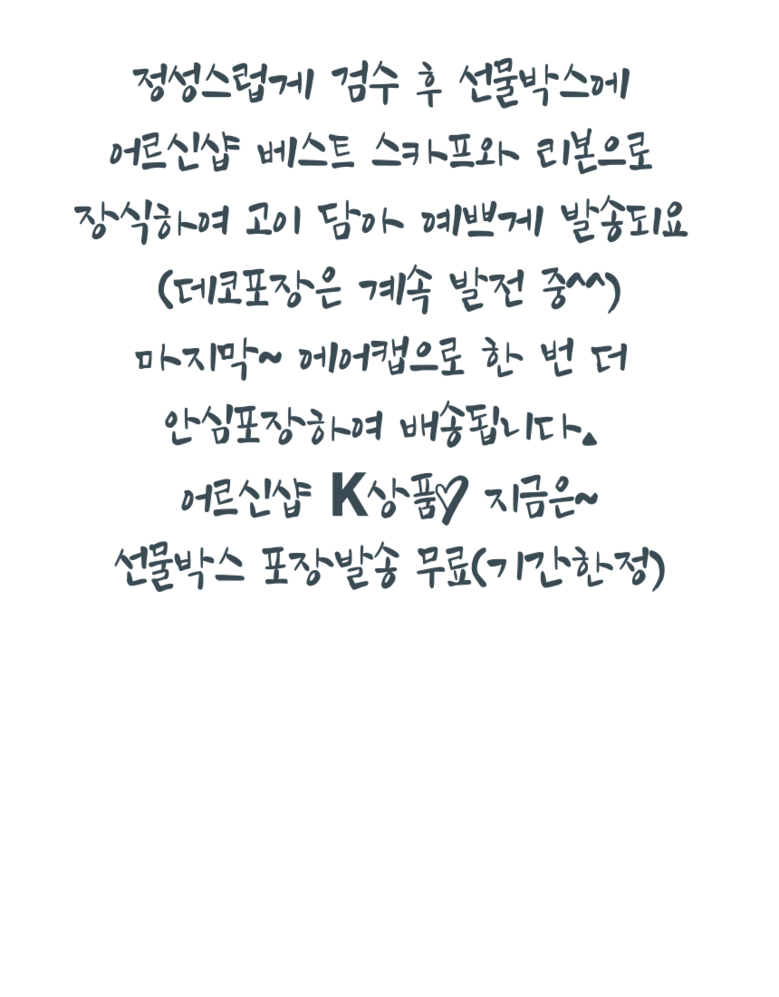 정성스럽게 검수 후 선물박스에
어르신샵 베스트 스카프와 리본으로
장식하여 고이 담아 예쁘게 발송되요
(데코포장은 계속 발전 중^^)
마지막~ 에어캡으로 한 번 더
안심포장하여 배송됩니다▲
어르신샵 K상품♡ 지금은~
선물박스 포장발송 무료(기간한정)